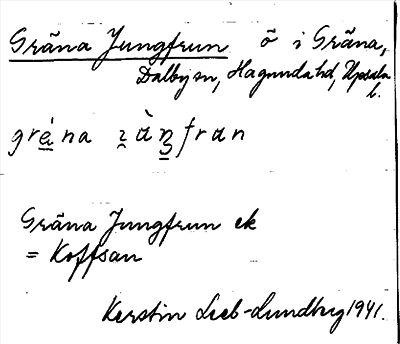 Gräna Jungfrun ö i Gräna,
Dalby sn, Hagunda hd, Upsala
l.
gréna ɪ̀ànʒfrun
Gräna Jungfrun ek
= Koffsan
Kerstin Leeb-Lundberg 1941.